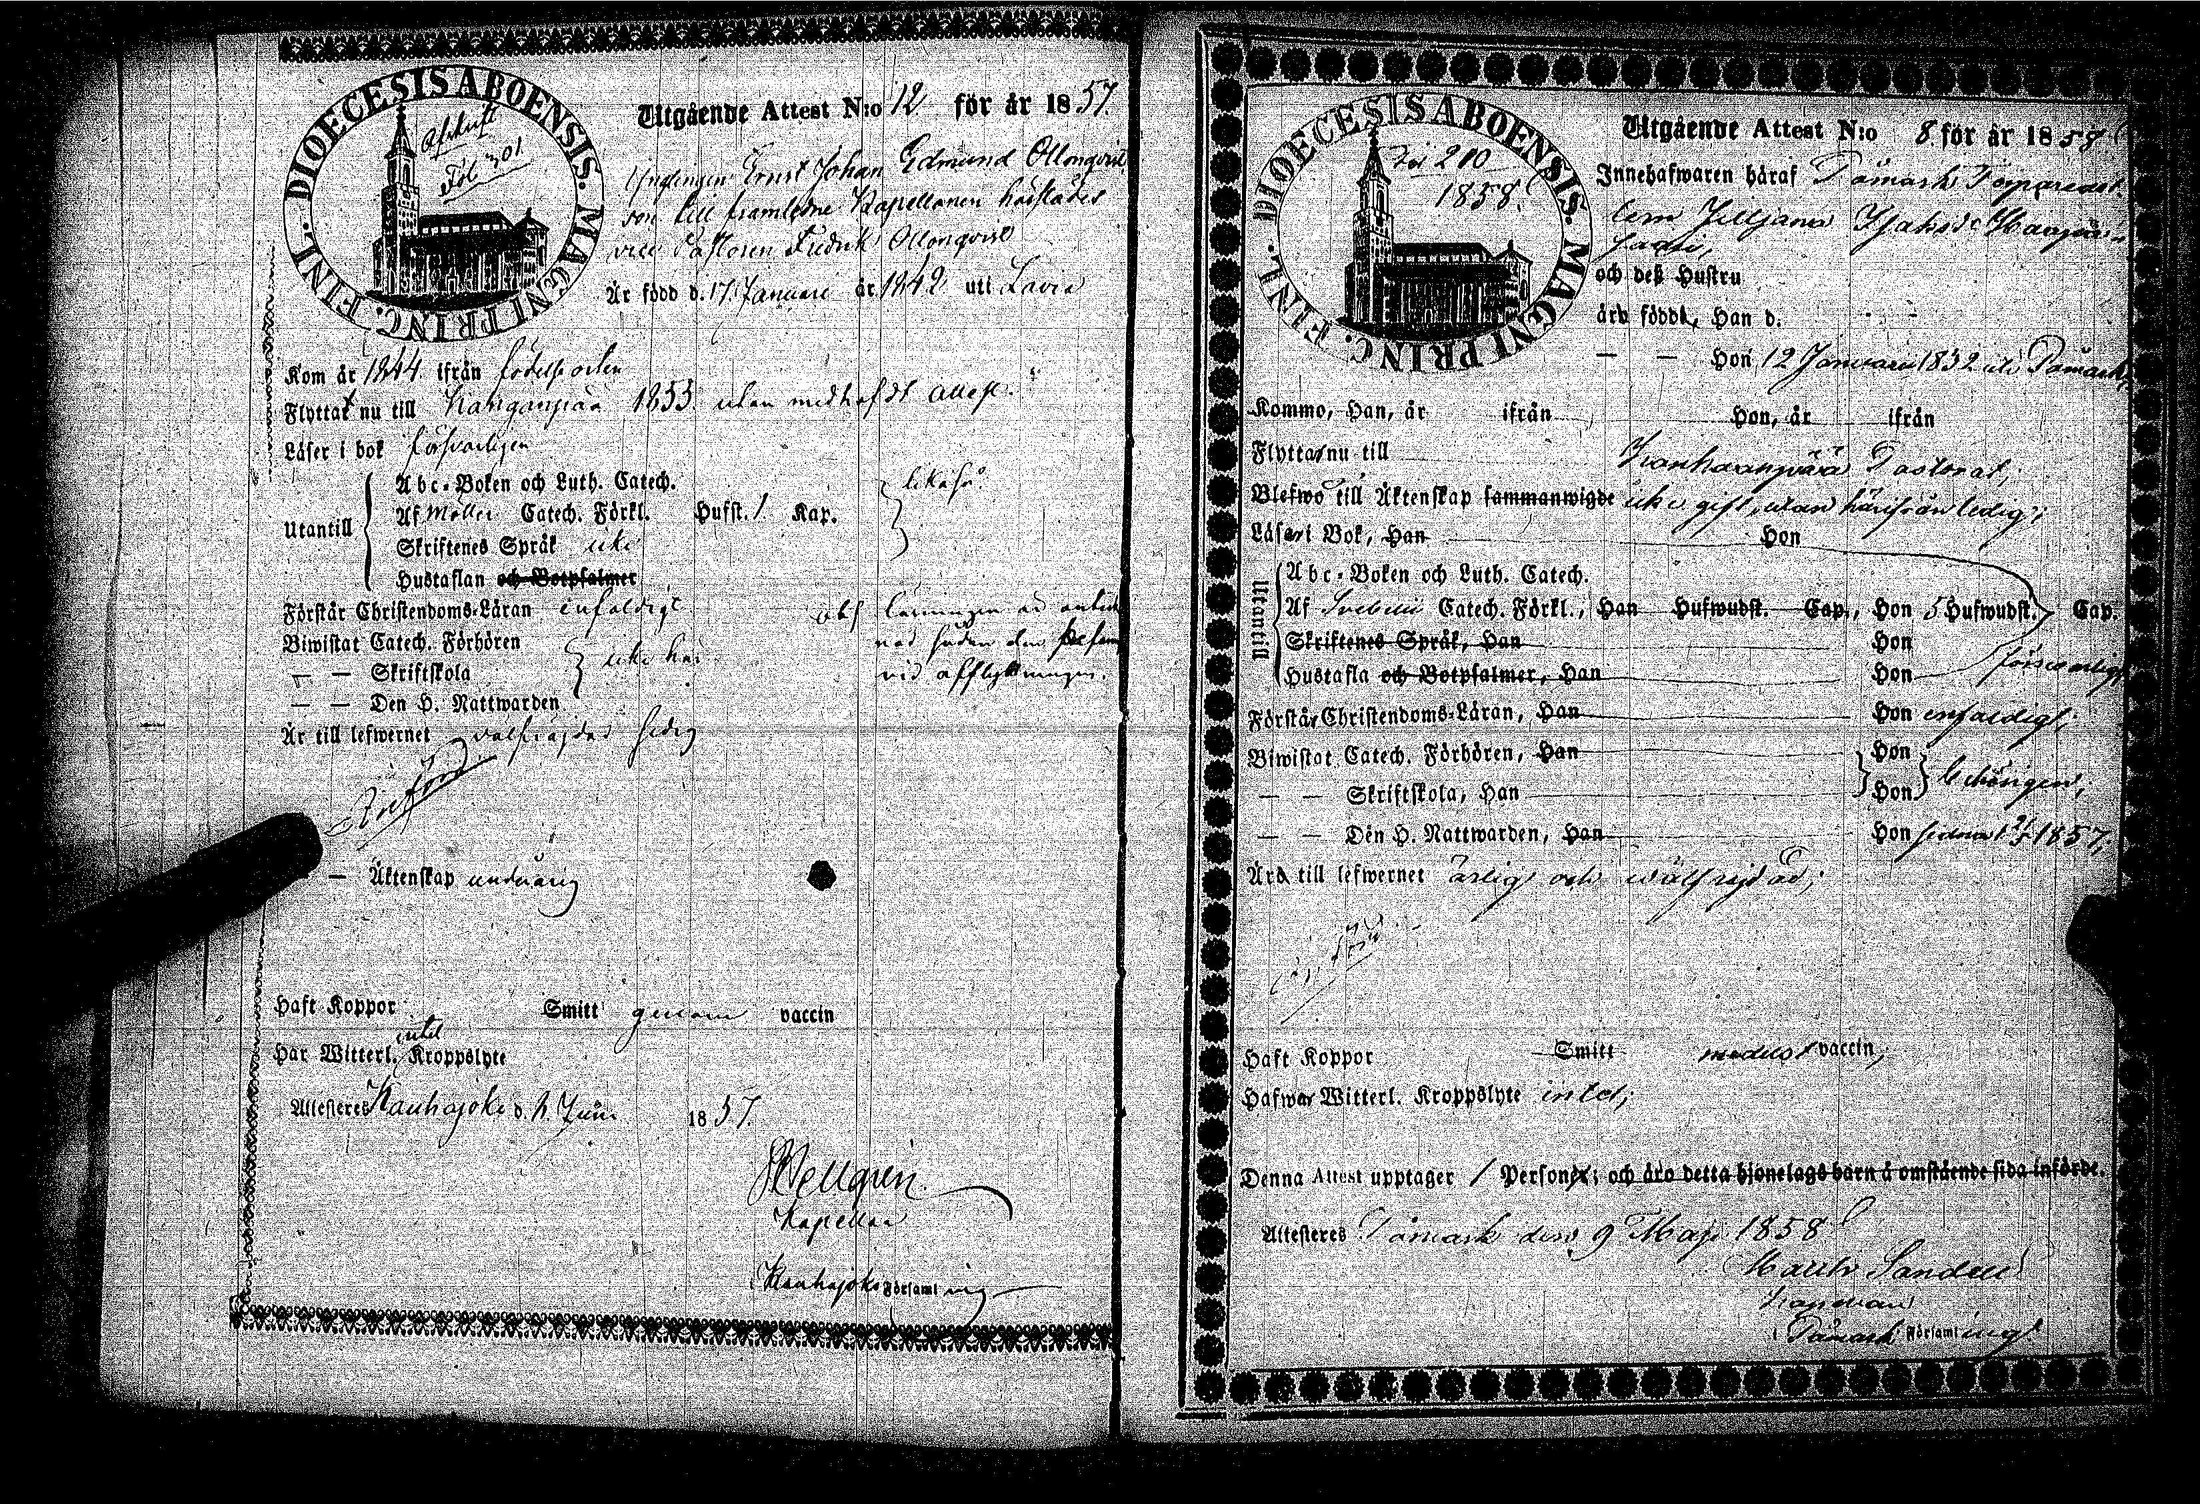 DIOECESIS ABOENSIS. MAGNI PRINC. FINL.
Afskrift
Fol 301
Utgående Attest N:o 12 för år 1857.
Ynglingen Ernst Johan Edmund Ollonqvist
son till framledne Kapellanen härstädes
vice Pastoren Fredrik Ollonqvist
Är född d. 17 Januari år 1842 uti Lavia
Kom år 1844 ifrån födelseorten
Flyttat nu till Kankaanpää 1853 utan medhafdt attest.
Läser i bok försvarligen
Utantill
Abc-Boken och Luth. Catech.
likaså.
Af Möller Catech. Förkl. Hufst. 1 Kap.
Skriftenes Språk icke
Hustaflan och Botpsalmer
Förstår Christendoms-Läran enfaldigt
obs
Biwistat Catech. Förhören
— — Skriftskola
icke har
— — Den H. Nattwarden
vid afflyttningen.
Är till lefwernet välfräjdad
— Äktenskap underårig
Haft Koppor Smitt genom vaccin
Har Witterl. intet Kroppslyte
Attesteres Kauhajoki d. Juni 1857.
Wellgren
Kapellan
Kauhajoki Församling
DIOECESIS ABOENSIS. MAGNI PRINC. FINL.
210
1858.
Utgående Attest N:o 8 för år 1858
Innehafwaren häraf Påmark
och deß Hustru
äro födde, Han d.
— — Hon 12 Januari 1832 uti Påmark
Kommo, Han, år ifrån Hon, år ifrån
Flyttar nu till Kankaanpää Pastorat;
Blefwo till Äktenskap sammanwigde icke gift, utan härifrån ledig;
Läser i Bok, Han Hon
Utantill
Abc-Boken och Luth. Catech.
Af Svebelii Catech. Förkl., Han Hufwudst. Cap., Hon 5 Hufwudst. Cap.
Skriftenes Språk, Han Hon
Hustafla och Botpsalmer, Han Hon
försvarligt
Förstår Christendoms-Läran, Han Hon enfaldigt;
Biwistat Catech. Förhören, Han Hon
behörigen;
— — Skriftskola, Han Hon
— — Den H. Nattwarden, Han Hon 1857;
Äro till lefwernet ärlig och wälfrejdad;
Haft Koppor Smitt medelst vaccin;
Hafwa Witterl. Kroppslyte intet;
Denna Attest upptager 1 Personer; och äro detta hjonelags barn å omstående sida införde.
Attesteres Påmark den 9 Maji 1858
Sandell
Kapellan
i Påmark Församling